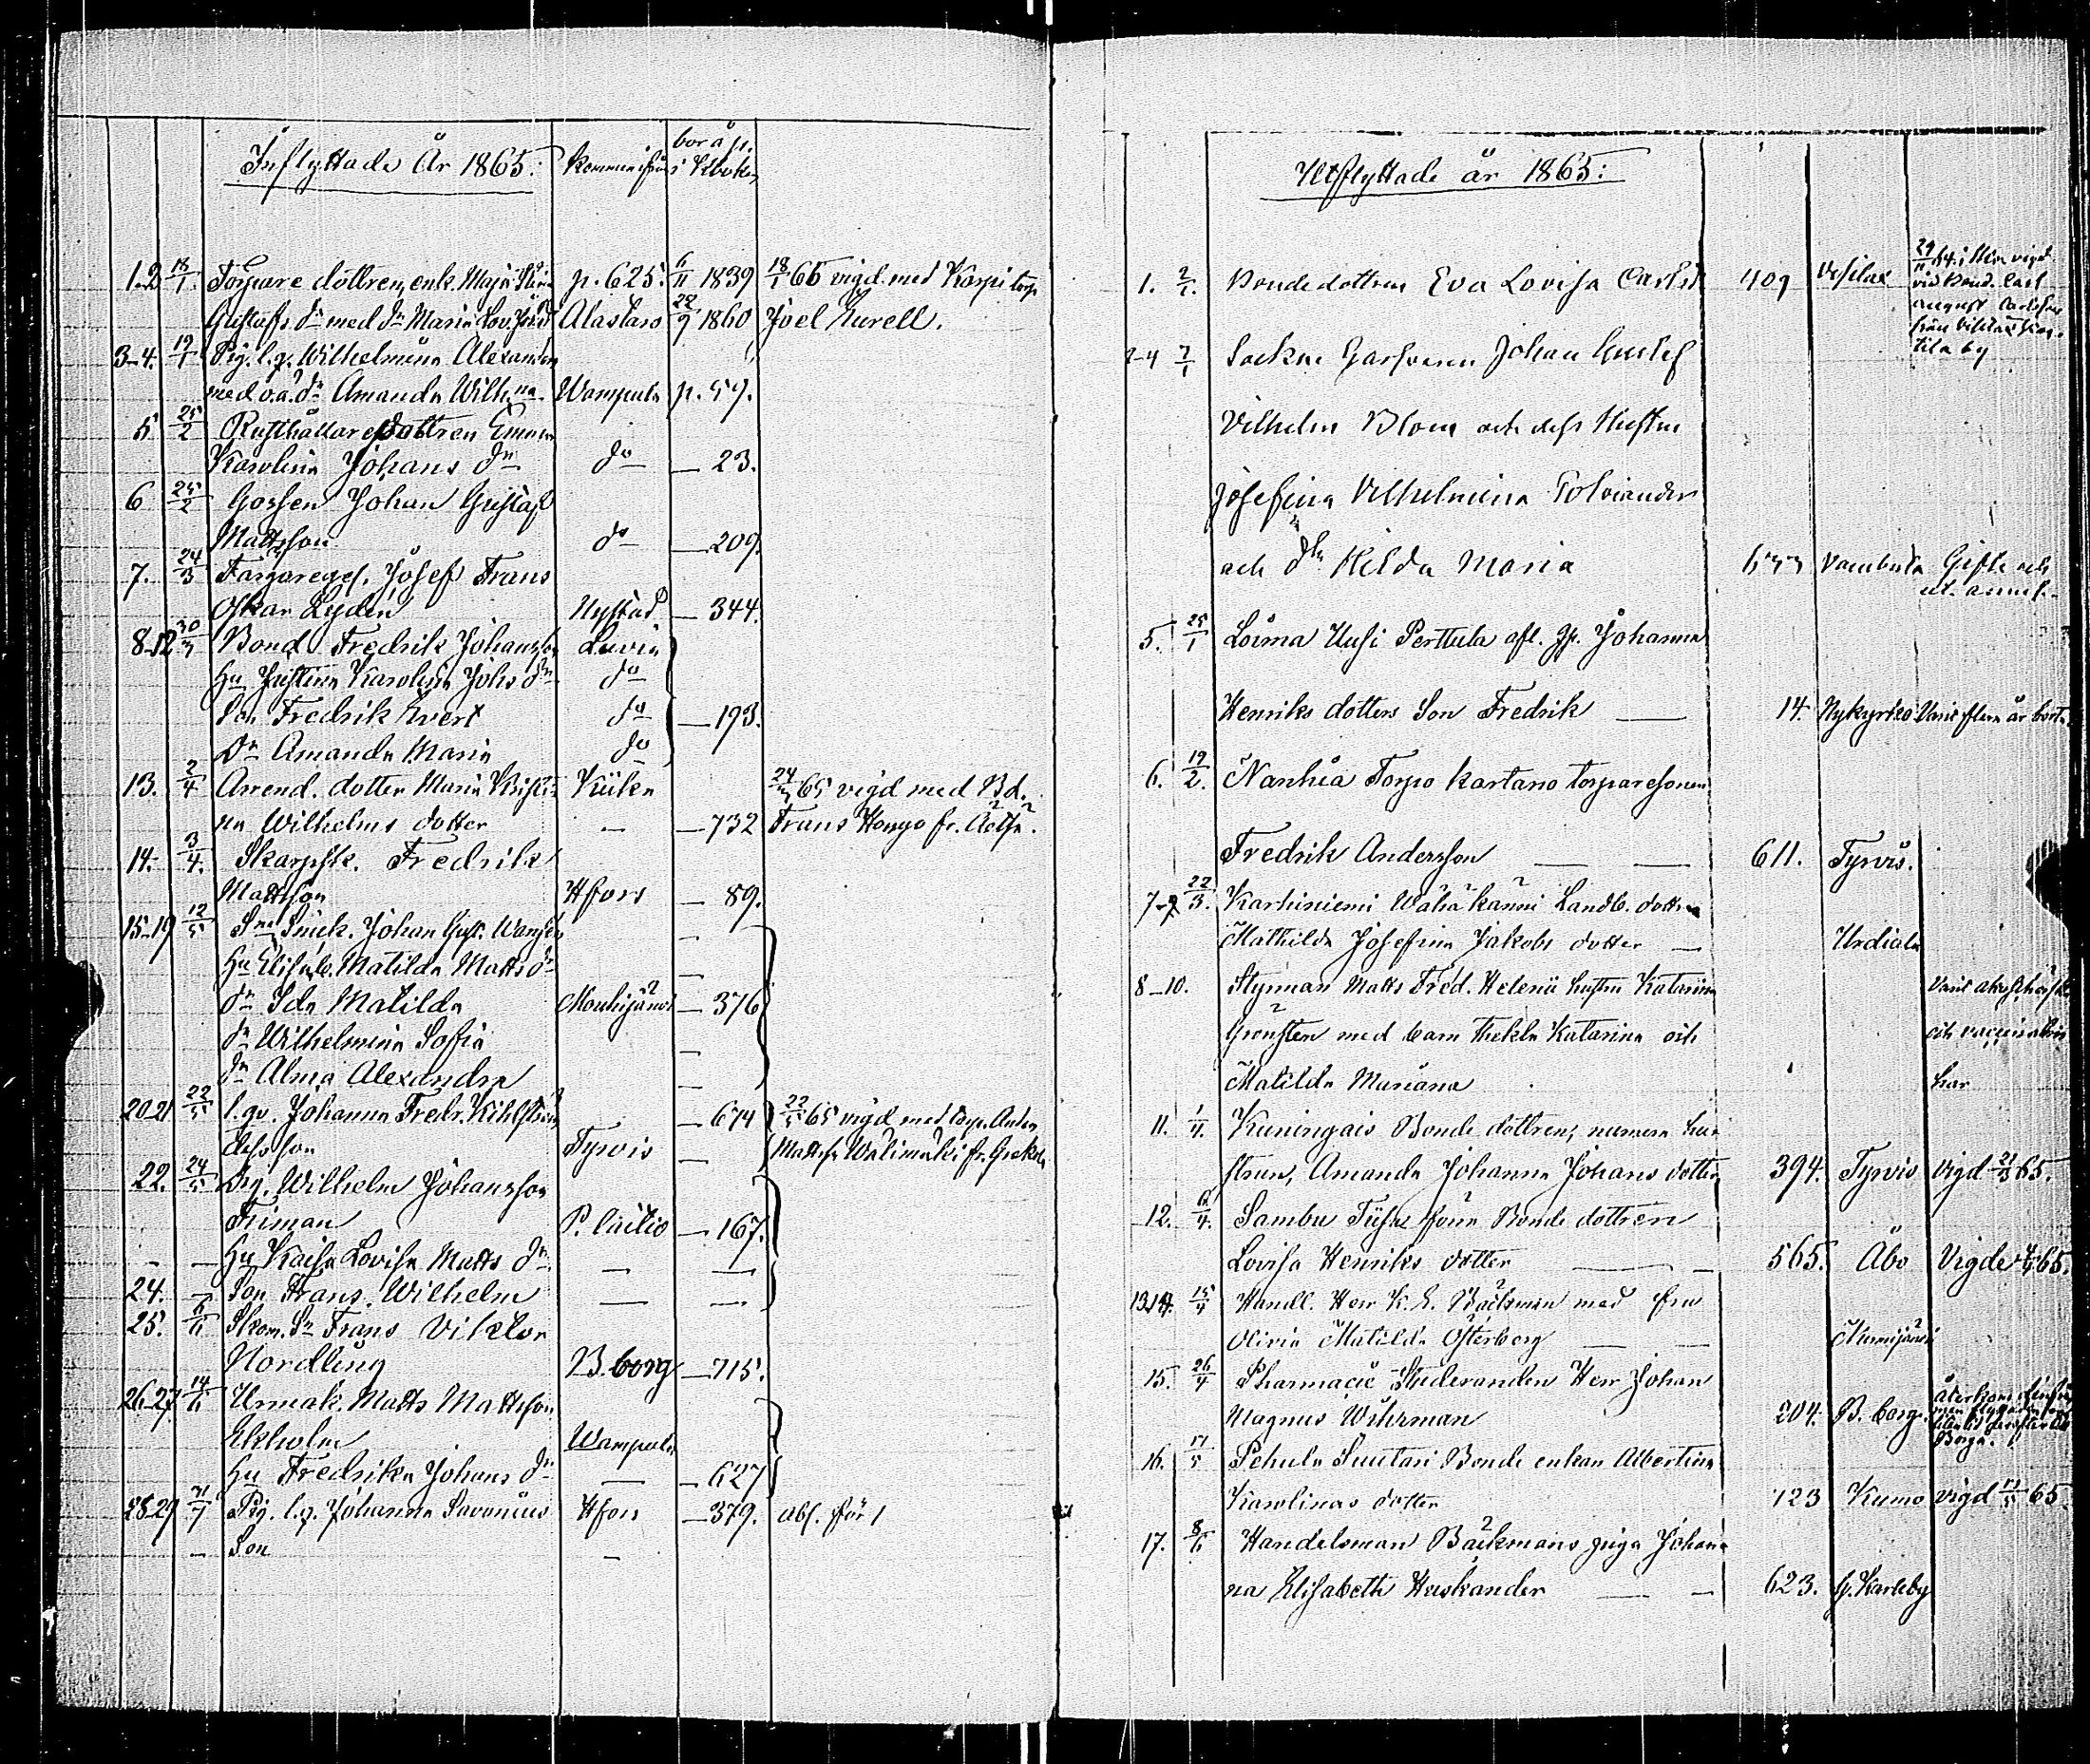 bor å p.
Inflyttade År 1865: kommen ifrån i Kboken
1-2 18/1 Torpare dottren, enk. Maja Stina p. 625. 6/11 1839 18/1 65 vigd med Karpi torp
Gustafs dr med dr Maria Lov. Alastaro 22/9 1860 Joel Kurell.
3-4. 19/1 Pig. l.q. Wilhelmina Alexanders
med o.ä. dr Amanda Wilh.na Wampula p. 59.
5 25/2 Rusthållaredottren Emma
Karolina Johans dr do — 23.
6 25/2 Gossen Johan Gustaf
Mattsson do — 209.
7. 24/3 Färgareges. Josef Frans
Oskar Lydén Nystad — 344.
8-12 30/3 Bond. Fredrik Johansson Luvia
Hu Justina Karolina Johs dr do
Son Fredrik Evert do — 193.
Dr Amanda Maria do
13. 2/4 Arrend. dotter Maria Kristi- Kiika 24/ 65 vigd med Bd.
na Wilhelms dotter — — 732 Frans Hongo fr.
14. 3/4. Skarpsk. Fredrik
Mattsson Hfors — 89.
15-19 12/5 Snick. Johan Gust.
Hu Elisab. Matilda Matts dr —
dr Ida Matilda Mouhijärvi — 376
dr Wilhelmina Sofia —
dr Alma Alexandra —
20-21. 22/5 l.qv. Johanna Fredr. Kihlström — 674 22/5 65 vigd med torp. Anders
dess son Tyrvis — Mattss. Wälimäki fr.
22. 24/5 Drg. Wilhelm Johansson
Friman P. Cailio — 167.
- - Hu Kaisa Lovisa Matts dr — —
24. - Son Frans Wilhelm — —
25. 6/6 Skom. Sn Frans Viktor
Nordling B.borg — 715.
26-27 14/6 Urmak. Matts Mattsson
Ekholm Wampula
Hu Fredrika Johans dr — — 627
28-29 31/7 Pig. l.q. Johanna Savonius Hfors — 379. abs. för 1
- Son -
Utflyttade år 1865:
1. 2/1. Bonde dottren Eva Lovisa Carlsd 409 Vesilax 29/11 64 i Wm vigd
vid bond. Carl
August Carlsson
från Vesilax
tila by
2-4 7/1 Sockne Garfvaren Johan Gustaf
Vilhelm Blom och dess Hustru
Josefina Vilhelmina Polviander
och dtr Hilda Maria 633 Vambula Gifta och
5. 25/1 Loima Uusi Perttula afl. Johanna
Henriks dotters Son Fredrik — 14. Nykyrko Varit flera år borta
6. 19/2. Nanhia Torpo Kartano torparesonen
Fredrik Andersson — — 611. Tyrvis.
7-9 22/3. Karhiniemi Wähäkänni Landb. dottren
Mathilda Josefina Jakobs dotter — Urdiala
8-10. Styrman Matts Fred. Helenii hustru Katarina Varit
Grönsten med barn Thekla Katarina och och vaccination
Matilda Mariana har
11. 1/4. Kuningais Bonde dottren, numera hu-
strun, Amanda Johanna Johans dotter 394. Tyrvis vigd 21/3 65.
12. 6/4. Sambu Bonde dottren
Lovisa Henriks dotter — — 565. Åbo Vigde 65.
13-14. 15/4 Handl. Herr K. E. Bäckman med fru
Olivia Matilda Österberg — — Nurmijärvi
15. 26/4 Pharmacie Studeranden Herr Johan återkom
Magnus Wihrman 204. B. borg.
Borgå.
16. 17/5 Pehula Suutari Bonde enkan Albertina
Karolinas dotter 123 Kumo vigd 17/5 65.
17. 8/6 Handelsman Bäckmans piga Johan-
na Elisabeth Huskander — — 623. G. Karleby